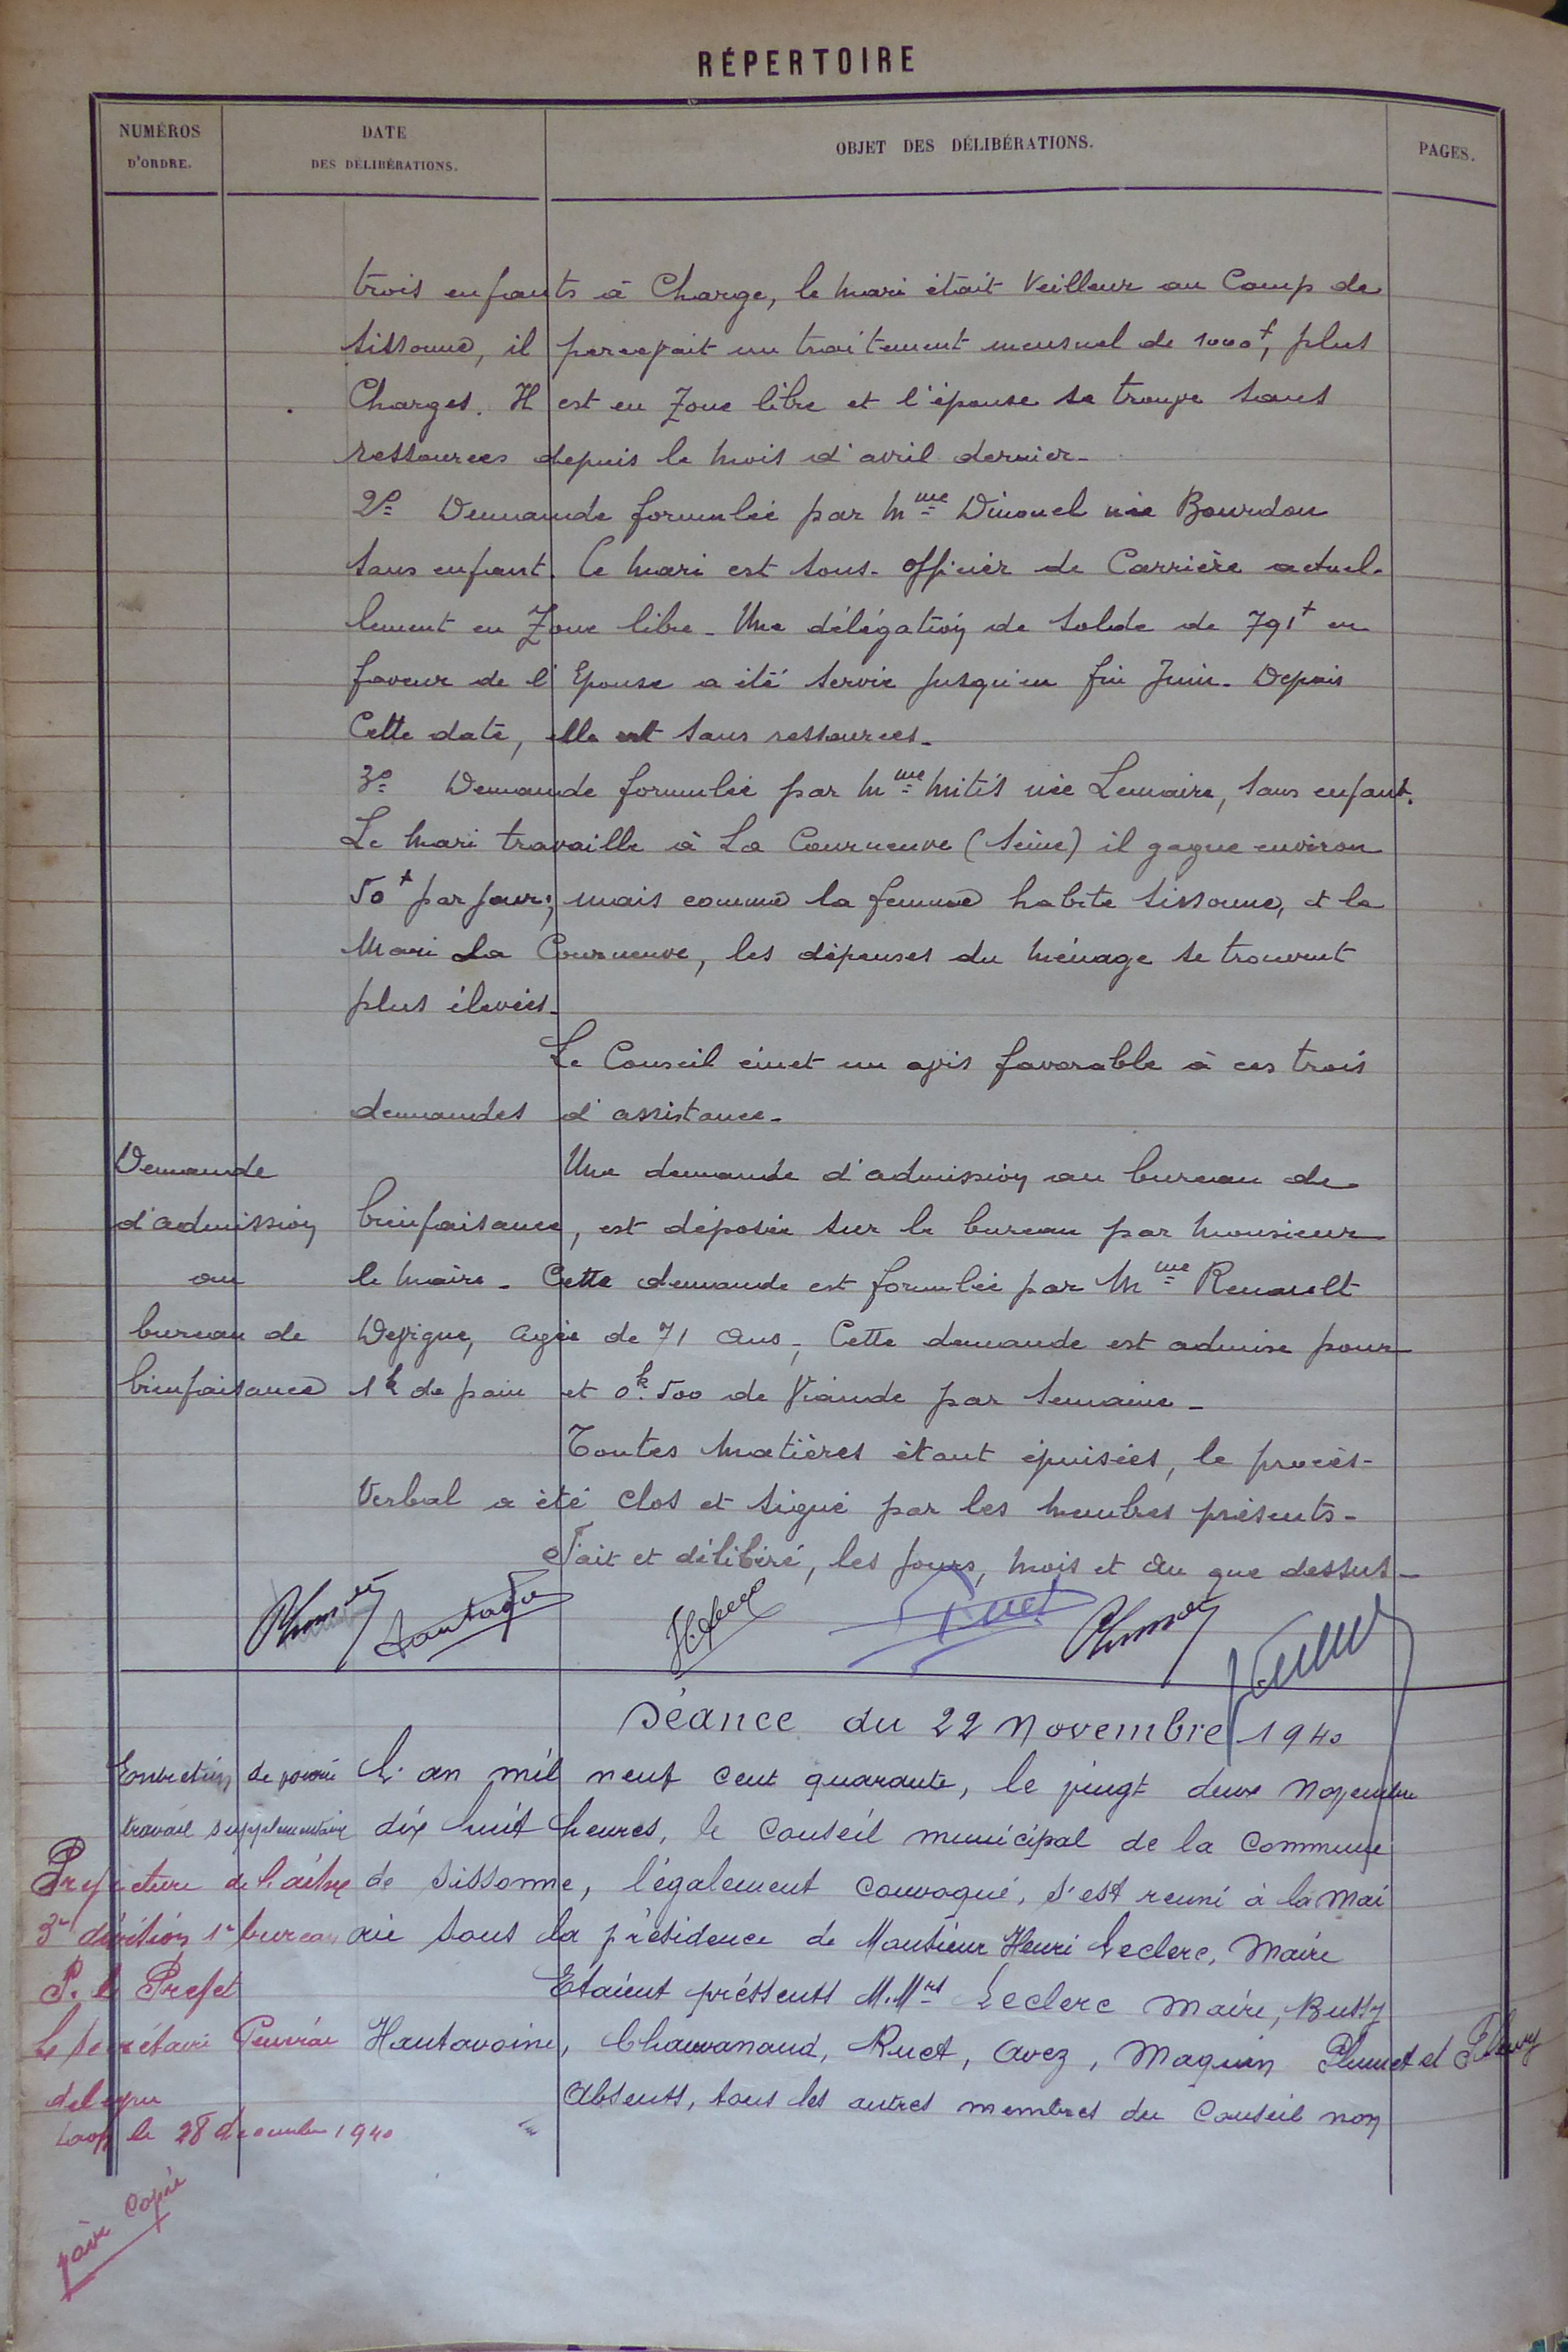 RÉPERTOIRE
NUMÉROS
D'ORDRE.
DATE
DES DÉLIBÉRATIONS.
OBJET DES DÉLIBÉRATIONS.
PAGES.
trois enfants à Charge, le mari était Veilleur au Camp de
Sissonne, il percevait un traitement mensuel de 1000f, plus
Charges. Il est en Zone libre et l'épouse se trouve sans
ressources depuis le mois d'avril dernier-
2º Demande formulée par Mme Dinouel née Bourdon
sans enfant. Le mari est sous-officier de Carrière actuel-
lement en Zone libre - Une délégation de solde de 791f en
faveur de l'Epouse a été servie jusqu'en fin Juin. Depuis
Cette date, elle est sans ressources-
3º Demande formulée par Mme Mités née Lemaire, sans enfant.
Le mari travaille à La Courneuve (Seine) il gagne environ
50f par jour; mais comme la femme habite Sissonne, et le
Mari La Courneuve, les dépenses du ménage se trouvent
plus élevées-
Le Conseil émet un avis favorable à ces trois
demandes d'assistance-
Demande
d'admission
au
bureau de
bienfaisance
Une demande d'admission au bureau de
bienfaisance, est déposée sur le bureau par monsieur
le maire - Cette demande est formulée par Mme Renault
Devigne, agée de 71 ans, Cette demande est admise pour
1k de pain et 0k.500 de Viande par semaine-
Toutes matières étant épuisées, le procès-
Verbal a été clos et signé par les membres présents-
Fait et délibéré, les jours, mois et an que dessus-
Ruet
Séance du 22 Novembre 1940
travail supplémentaire
Prefecture de l'aisne
3e division 1er bureau
P. le Prefet
Le Secrétaire Général
délégué
Laon le 28 décembre 1940
L'an mil neuf cent quarante, le vingt deux Novembre
dix huit heures, le Conseil municipal de la Commune
de Sissonne, légalement convoqué, s'est reuni à la mai
rie sous la présidence de Monsieur Henri Leclerc, Maire
Etaient préssents M.Mrs Leclerc Maire, Bussy
Hautavoine, Chauvanaud, Ruet, Avez, Maquin Plumet et Fleury
Absents, tous les autres membres du Conseil non
Copie